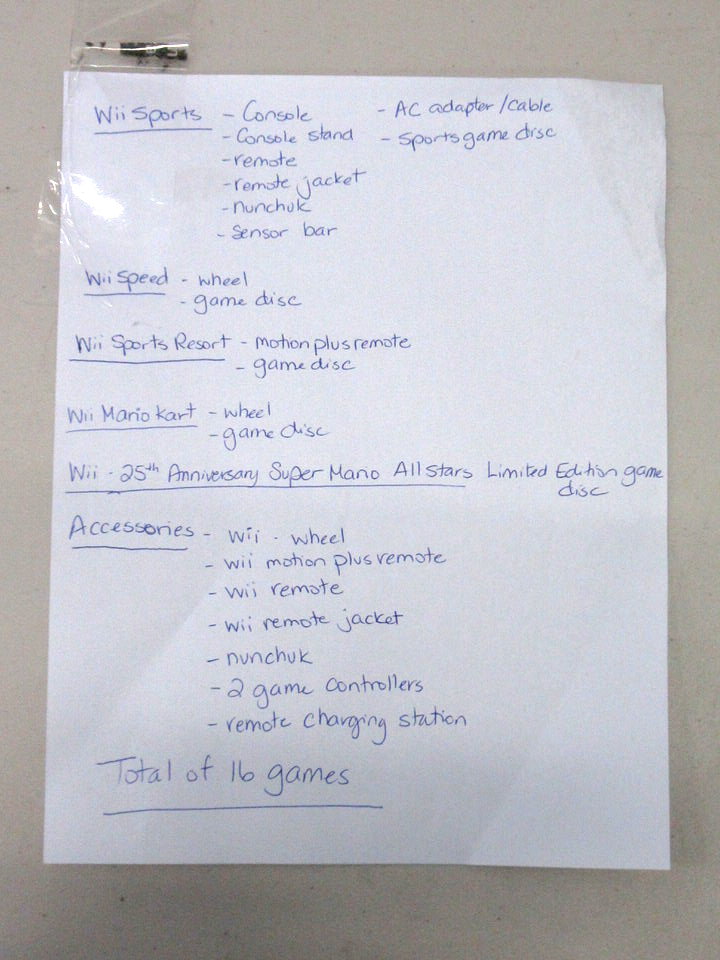 Wii Sports - Console - AC adapter/cable
- Console stand - sports game disc
- remote
- remote jacket
- nunchuk
- sensor bar
Wii Speed - wheel
- game disc
Wii Sports Resort - Motion plus remote
- game disc
Wii Mario Kart - wheel
- game disc
Wii - 25th Anniversary Super Mario All Stars Limited Edition game
disc
Accessories - Wii - wheel
- wii motion plus remote
- wii remote
- wii remote jacket
- nunchuk
- 2 game controllers
- remote charging station
Total of 16 games